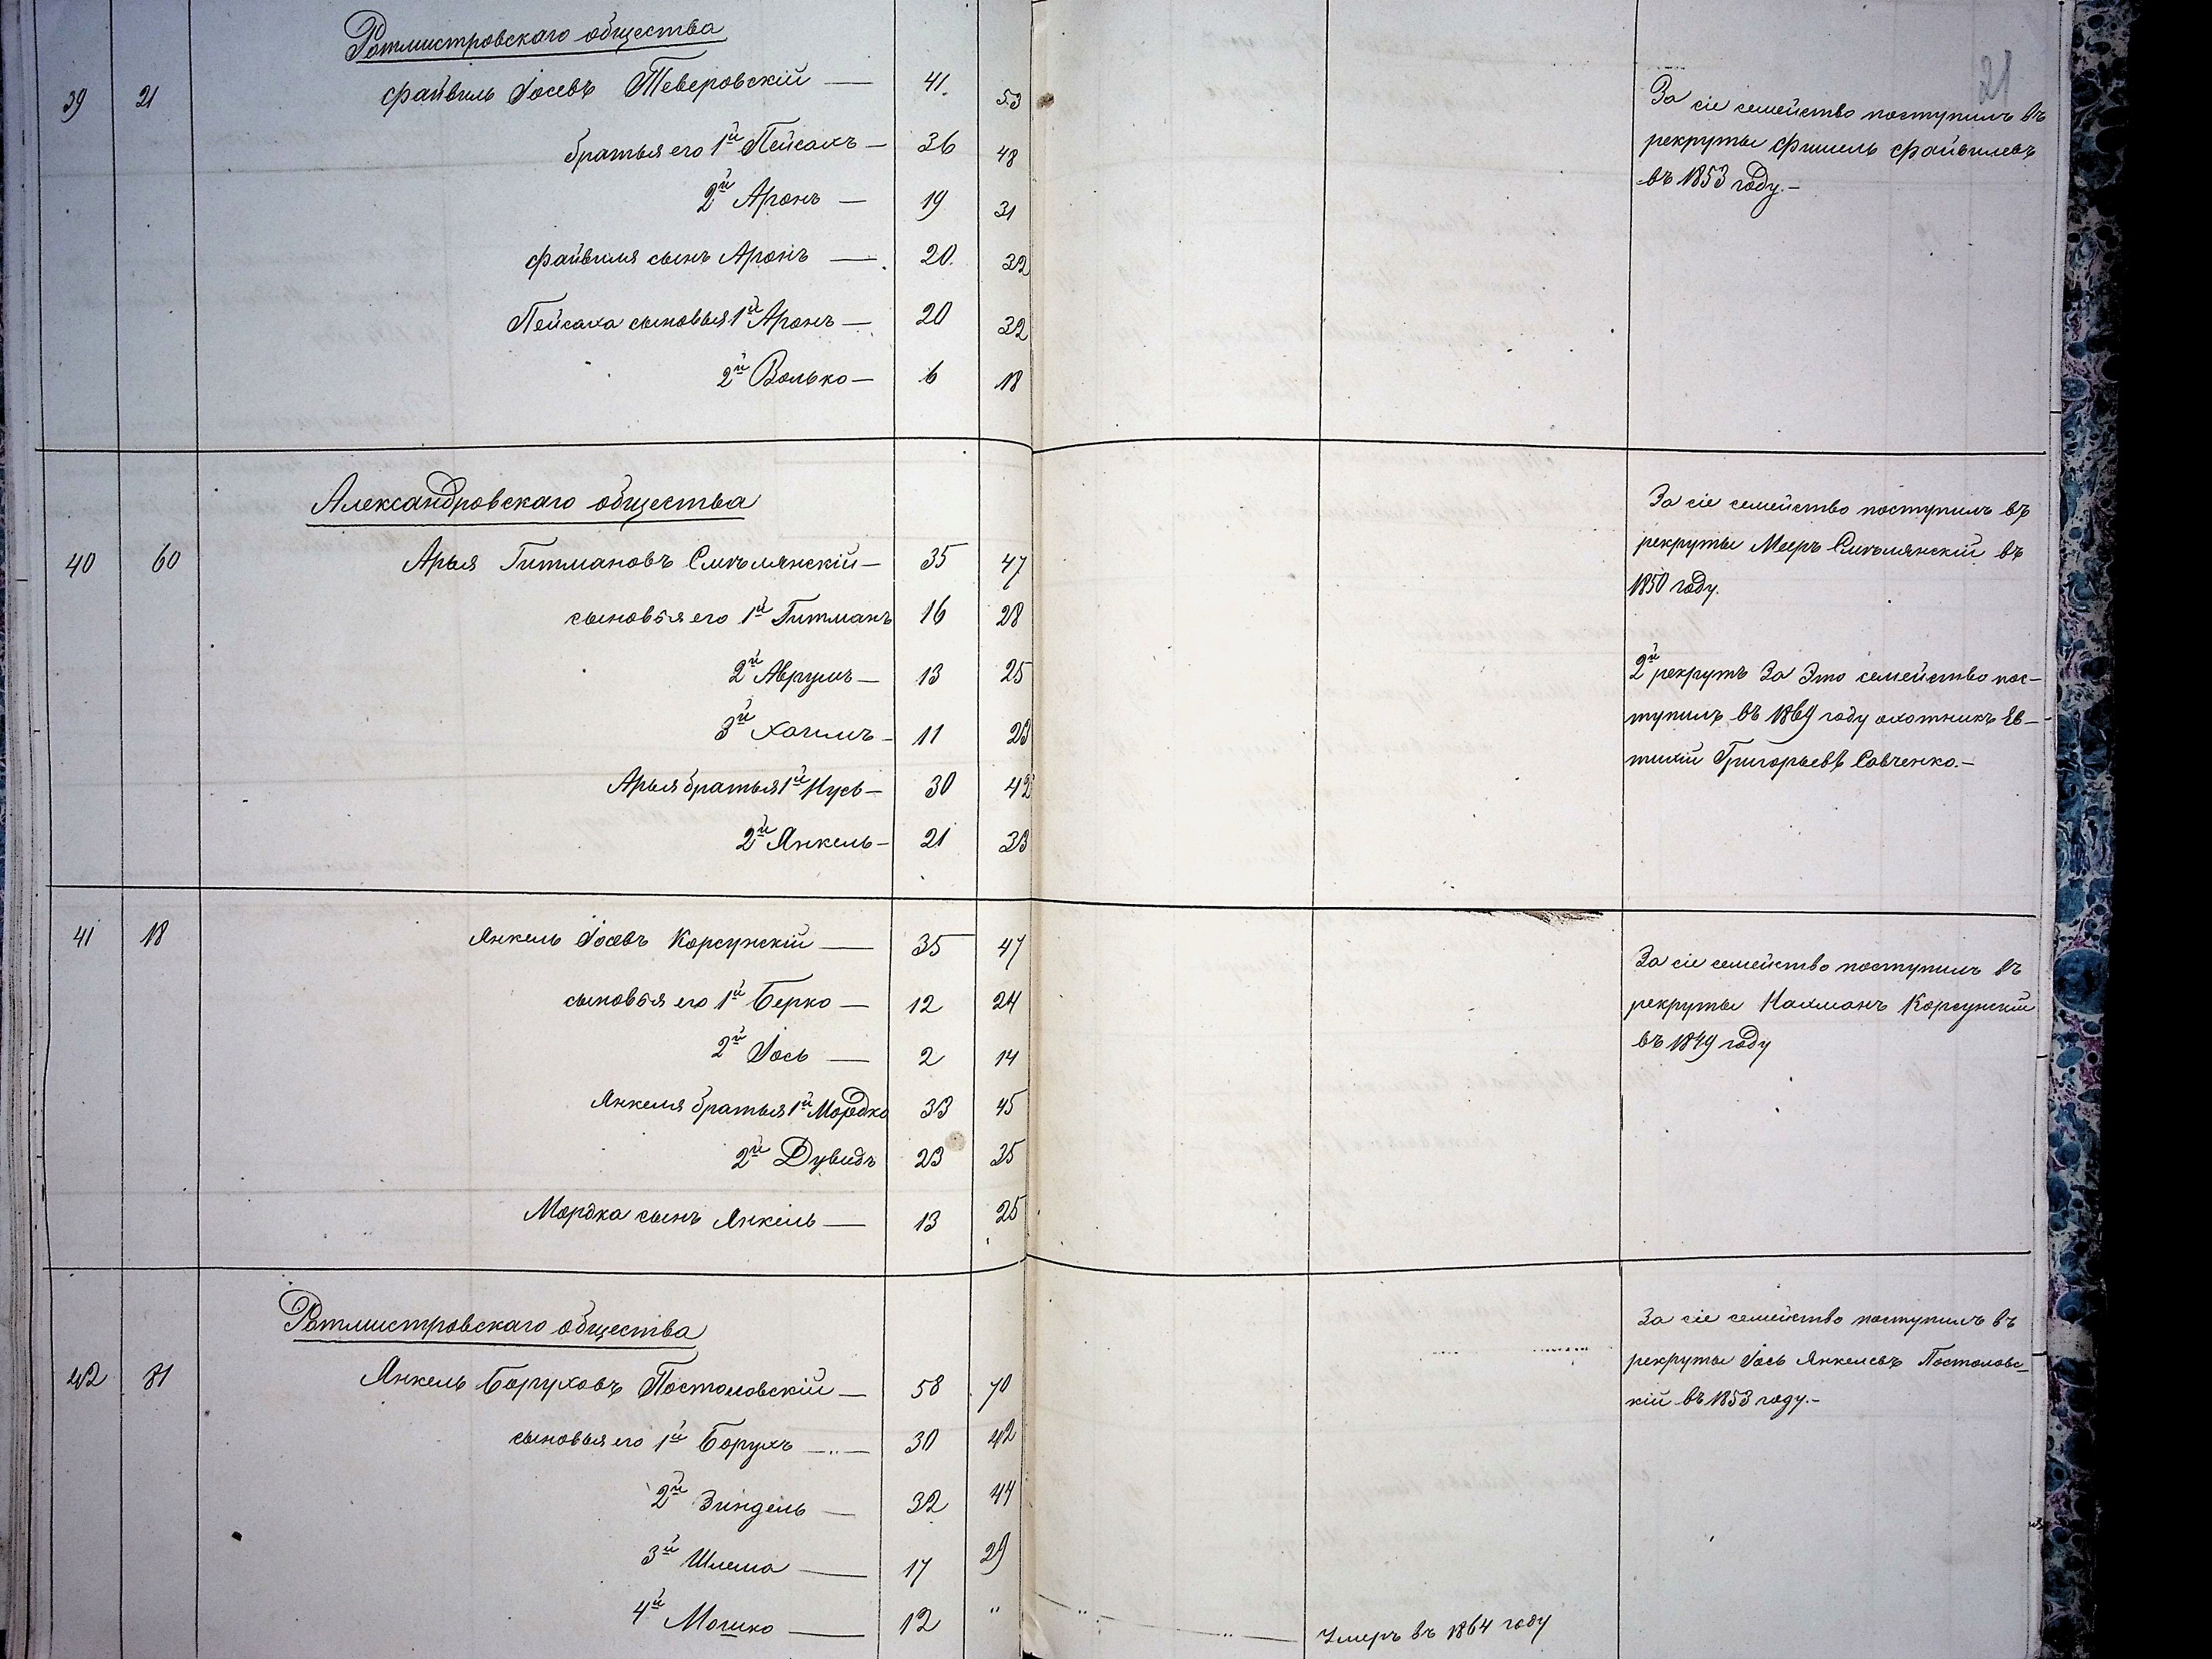 21
Ротмистровскаго общества
39 21 Файвиль Іосевъ Тверовскій — 41. 53
братья его 1й Пейсахъ — 36 48
2й Аронъ — 19 31
Файвиля сынъ Аронъ — 20. 32
Пейсаха сыновья 1й Аронъ — 20 32
2й Волько — 6 18
За сіе семейство поступилъ въ
рекруты Фишель Файвилевъ
въ 1853 году. —
Александровскаго общества
40 60 Арыя Гитмановъ Смѣлянскій — 35 47
сыновья его 1й Гитманъ 16 28
2й Аврумъ — 13 25
3й Хаимъ — 11 23
Арыя братья 1й Нусь — 30 42
2й Янкель — 21 33
За сіе семейство поступилъ въ
рекруты Мееръ Смѣлянскій въ
1850 году.
2й рекрутъ За Это семейство пос-
тупилъ въ 1869 году охотникъ Ев-
тихій Григорьевъ Савченко. —
41 18 Янкель Іосевъ Корсунскій — 35 47
сыновья его 1й Берко — 12 24
2й Іось — 2 14
Янкеля братья 1й Мордко 33 45
2й Дувидъ 23 35
Мордка сынъ Янкель — 13 25
За сіе семейство поступилъ въ
рекруты Нахманъ Корсунскій
въ 1849 году
Ротмистровскаго общества
42 31 Янкель Боруховъ Постоловскій — 58 70
сыновья его 1й Борухъ — 30 42
2й Зиндель — 32 44
3й Шлема — 17 29
4й Мошко — 12 " Умеръ въ 1864 году
За сіе семейство поступилъ въ
рекруты Іось Янкелевъ Постоловс-
кій въ 1853 году. —